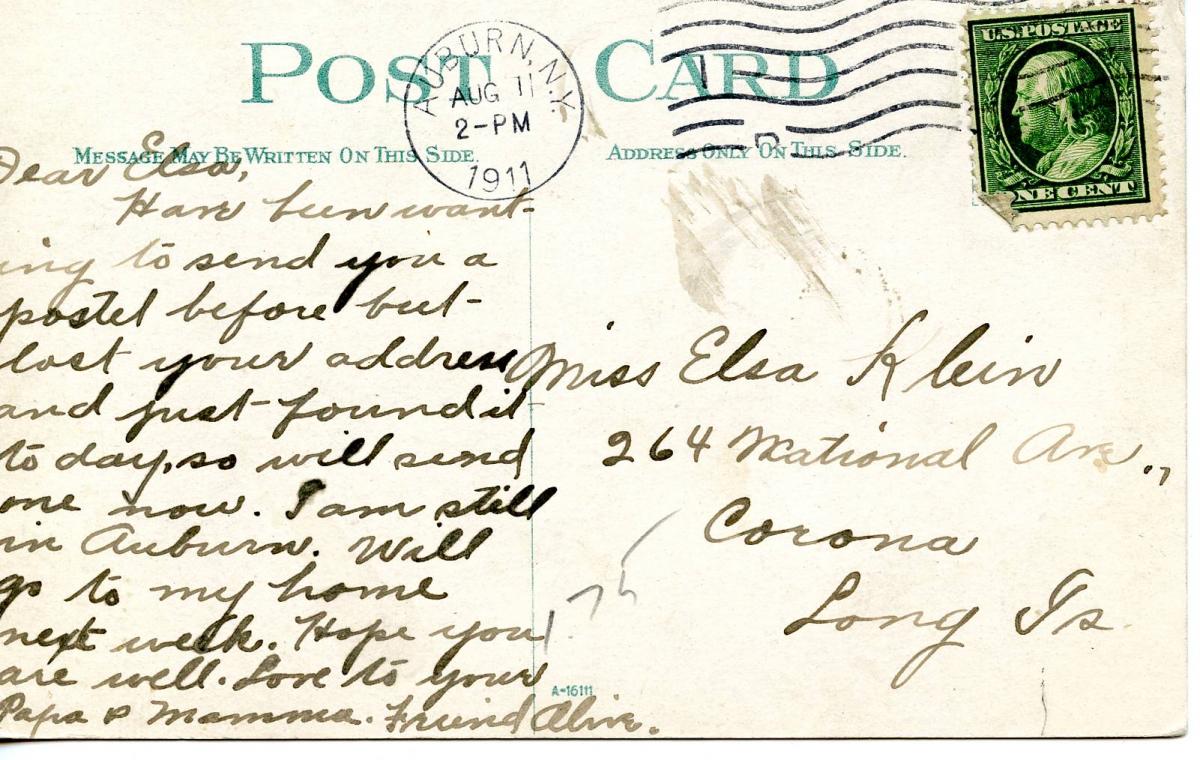 POST CARD
AUBURN, N.Y.
AUG 11
2-PM
1911
U.S. POSTAGE
ONE CENT
MESSAGE MAY BE WRITTEN ON THIS SIDE.
ADDRESS ONLY ON THIS SIDE.
Dear Elsa,
Have been want-
ing to send you a
postel before but
lost your address
and just found it
to day, so will send
one now. I am still
in Auburn. Will
go to my home
next week. Hope you
are well. Love to your
Papa & Mamma. Friend Olive.
Miss Elsa Klein
264 National Ave.,
Corona
Long Is.
A-16111